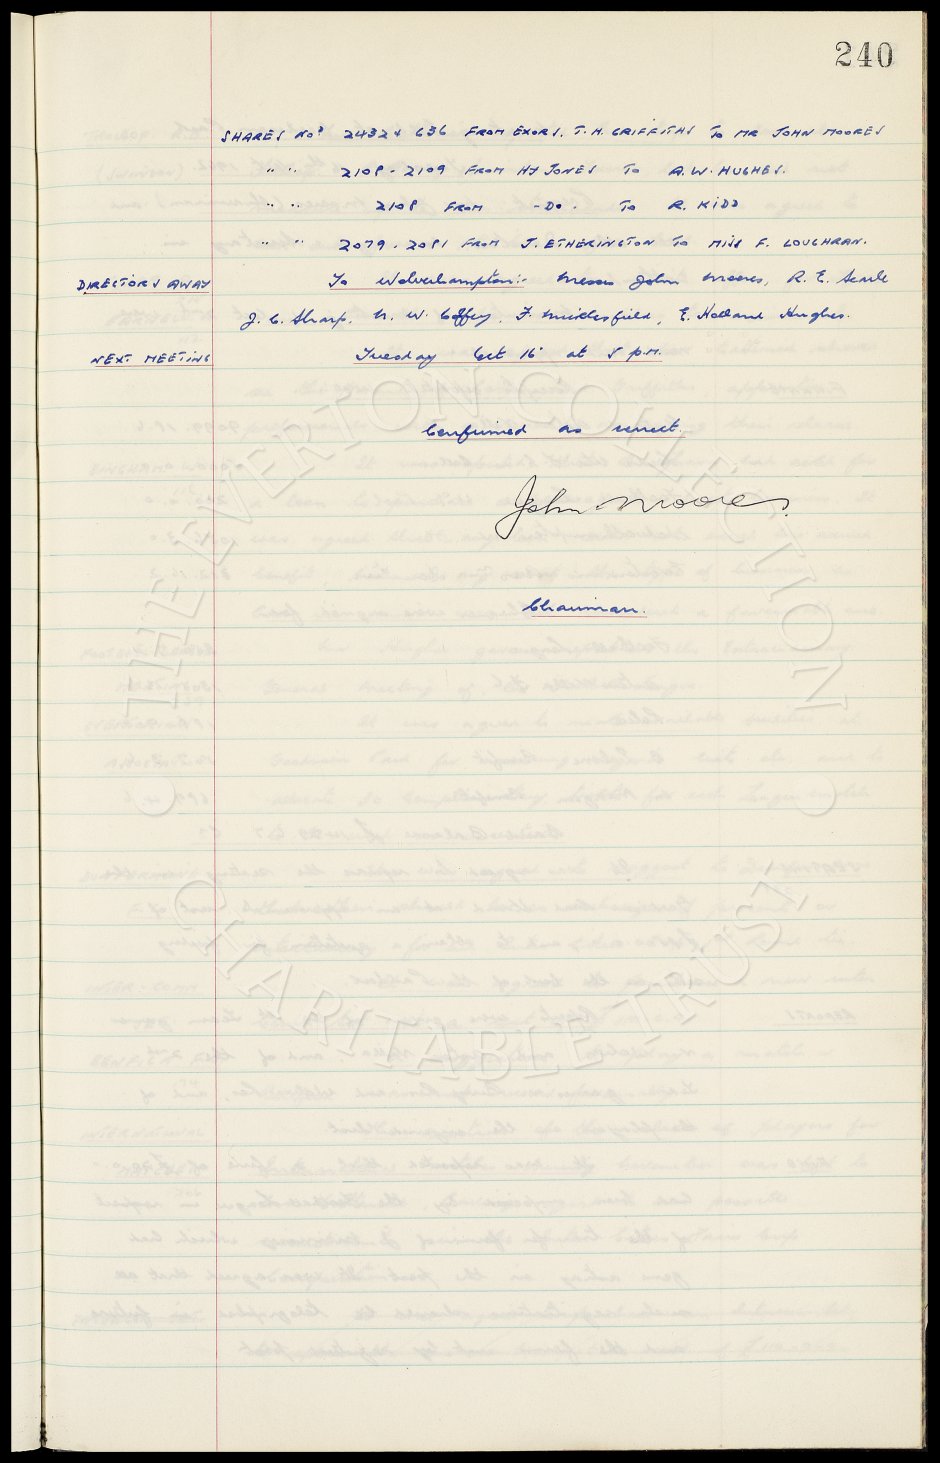 240
SHARES Nos 2432 & 636 FROM EXORS. T.H. GRIFFITHS TO MR JOHN MOORES
" " 2108 - 2109 FROM HY JONES TO A.W. HUGHES.
" " 2108 FROM -DO. TO R. KIDD
" " 2079 - 2081 FROM J. ETHERINGTON TO MISS F. LOUGHRAN.
DIRECTORS AWAY To Wolverhampton:- Messrs John Moores, R. E. Searle
J. C. Sharp, N. W. Coffey, F. Micklesfield, E. Holland Hughes.
NEXT MEETING Tuesday Oct 16 at 5 p.m.
Confirmed as correct.
John Moores.
Chairman.
THE EVERTON COLLECTION
CHARITABLE TRUST